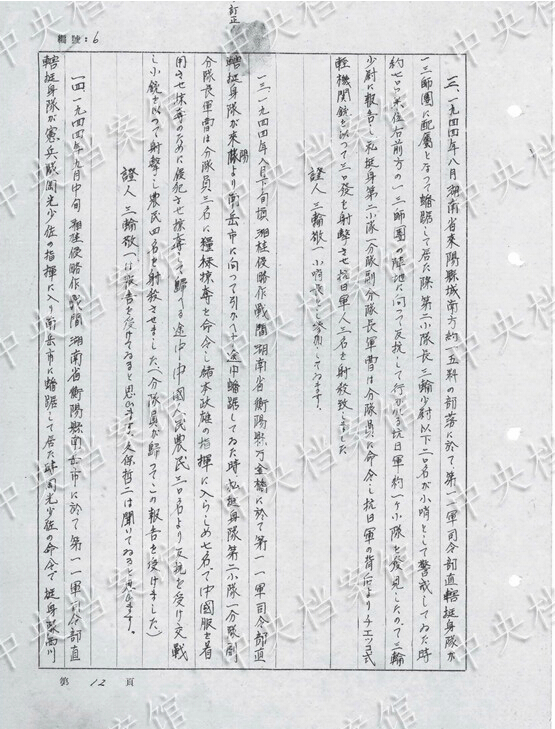 欄號:6
訂正
一二、一九四四年八月湖南省耒陽縣城南方約一五粁の部落に於て第一一軍司令部直轄挺身隊が
一三師團に配屬となつて蟠踞して居た際第二小隊長三輪少尉以下二〇名が小哨として警戒してゐた時
約七〇〇米位右前方の一三師團の陣地に向つて反抗して行かれる抗日軍約一ケ小隊を發見したので三輪
少尉に報告し私挺身第二小隊一分隊副分隊長軍曹は分隊員に命令し抗日軍の背后よりチエツコ式
輕機関銃を以つて三〇發を射撃させ抗日軍人三名を射殺致しました
證人 三輪敬一 小哨長として指揮してゐます。
一三、一九四四年八月下旬頃湘桂侵略作戰間湖南省衡陽縣万金橋に於て第一一軍司令部直
轄挺身隊が耒陽より南岳市に向つて引かへす途中蟠踞してゐた時私挺身隊第二小隊一分隊副
分隊長軍曹は分隊員三名に糧秣掠奪を命令し結本政雄の指揮に入らしめ七名で中國服を着
用させ掠奪のために侵犯させ掠奪して歸へる途中中國人民農民三〇名より反抗を受け交戰
し小銃を以つて射撃し農民四名を射殺させました(分隊員が歸つてこの報告を受けました)
證人 三輪敬一は報告を受けてゐると思ひます。久保哲二は聞いてゐると思ひます。
一四、一九四四年九月中旬湘桂侵略作戰間湖南省衡陽縣南岳市に於て第一一軍司令部直
轄挺身隊が憲兵隊岡光少佐の指揮に入り南岳市に蟠踞して居た時岡光少佐の命令で挺身隊西川
第 12 頁
中央档案馆